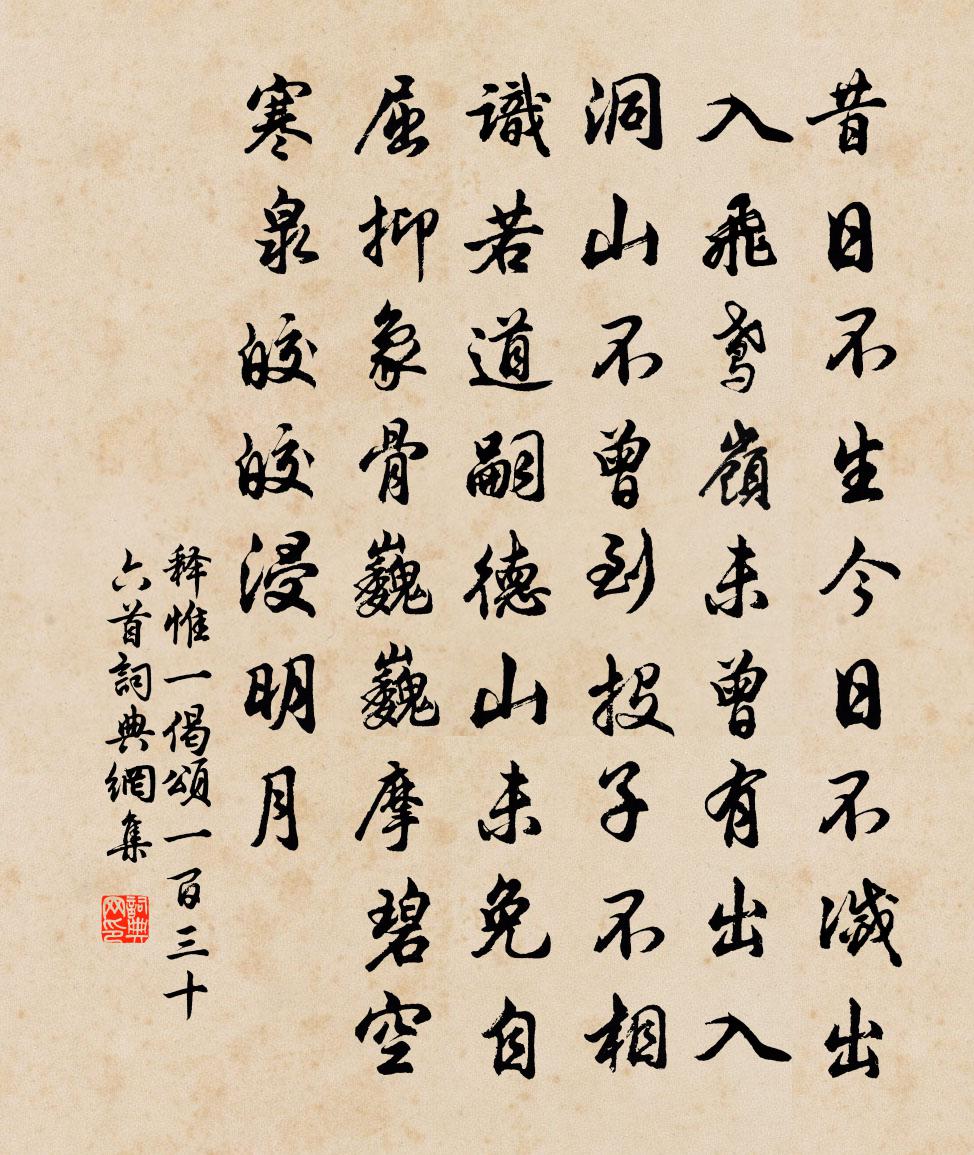 昔日不生今日不滅出
入飛鳶嶺未曾有出入
洞山不曾到投子不相
識若道嗣德山未免自
屈抑象骨巍巍摩碧空
寒泉皎皎浸明月
释惟一偈頌一百三十
六首詞典網集
詞典网印